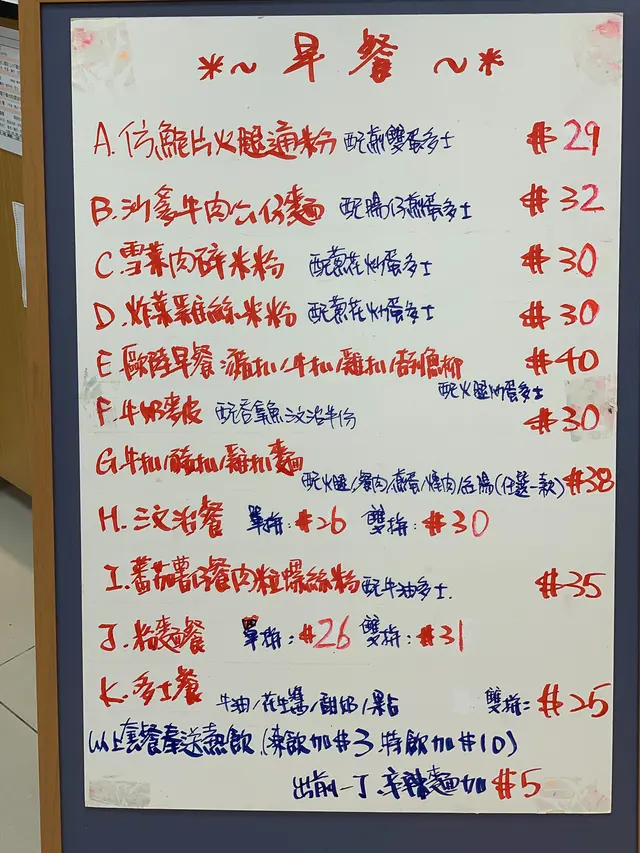 *~ 早餐 ~*
A.仿鮑片火腿通粉 配煎雙蛋多士 $29
B.沙爹牛肉公仔麵 配腸仔煎蛋多士 $32
C.雪菜肉碎米粉 配蔥花炒蛋多士 $30
D.炸菜雞絲米粉 配蔥花炒蛋多士 $30
E.歐陸早餐 豬扒/牛扒/雞扒/吉列魚柳 $40
配火腿炒蛋多士
F.牛奶麥皮 配吞拿魚文治半份 $30
G.牛扒/豬扒/雞扒麵
配火腿/餐肉/煎蛋/燻肉/紅腸(任選一款) $38
H.三文治餐 單拼:$26 雙拼:$30
I.蕃茄薯仔餐肉粒螺絲粉 配牛油多士. $35
J.粉麵餐 單拼:$26 雙拼:$31
K.多士餐 牛油/花生醬/甜奶/果占 雙拼:$25
以上套餐奉送熱飲(凍飲加$3.特飲加$10)
出前一丁.辛辣麵加$5